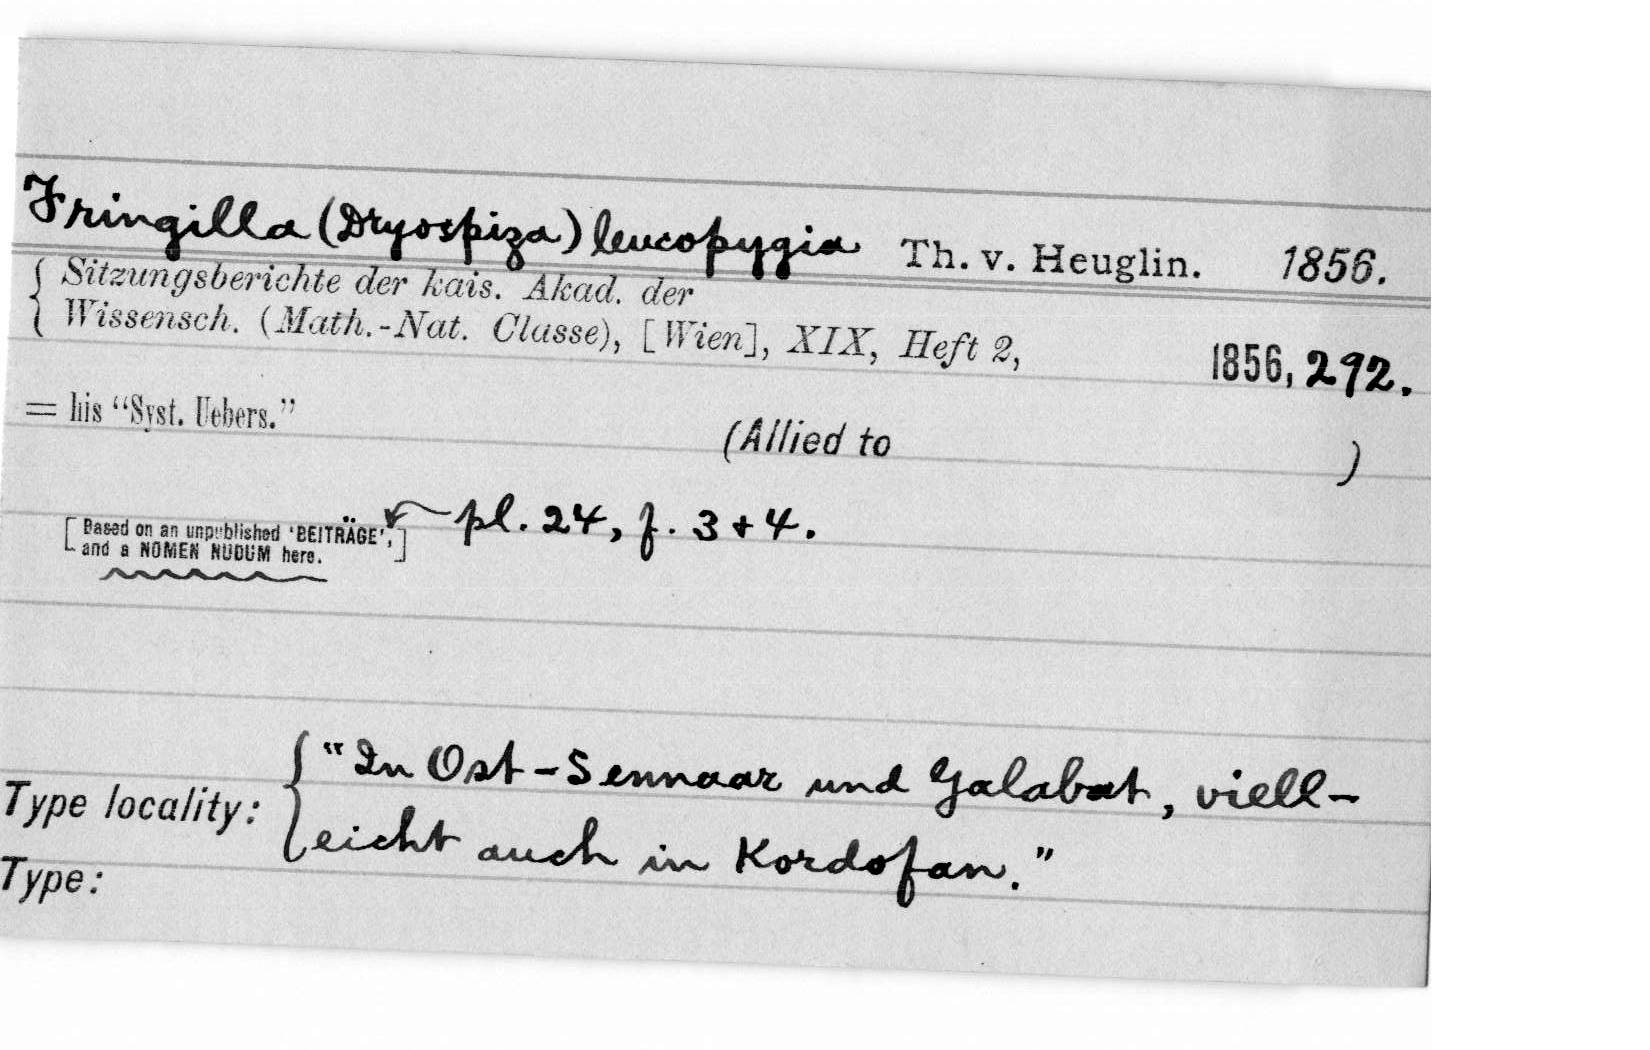 Fringilla (Dryospiza) leucopygia Th. v. Heuglin. 1856.
{ Sitzungsberichte der kais. Akad. der
Wissensch. (Math.-Nat. Classe), [Wien], XIX, Heft 2, 1856, 292.
= his "Syst. Uebers."
(Allied to )
[Based on an unpublished 'BEITRÄGE', pl. 24, f. 3 + 4.
and a NOMEN NUDUM here.]
Type locality: { "In Ost-Sennaar und Galabat, viell-
eicht auch in Kordofan."
Type: